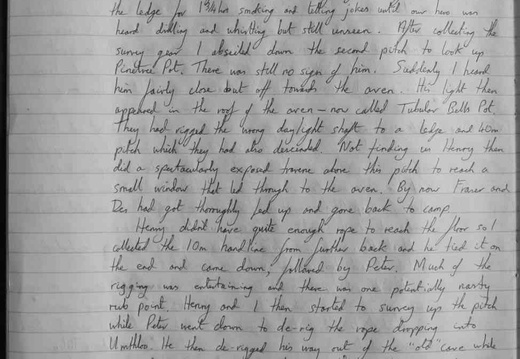 the ledge for 1¾hr smoking and telling jokes until our hero was
heard drilling and whistling but still unseen. After collecting the
survey gear I abseiled down the second pitch to look up
Pinetree Pot. There was still no sign of him. Suddenly I heard
him fairly close but off towards the aven. His light then
appeared in the roof of the aven – now called Tubular Bells Pot.
They had rigged the wrong daylight shaft to a ledge and 40m
pitch which they had also descended. Not finding us Henry then
did a spectacularly exposed traverse above this pitch to reach a
small window that led through to the aven. By now Fraser and
Des had got thoroughly fed up and gone back to camp.
Henry didn't have quite enough rope to reach the floor so I
collected the 10m handline from further back and he tied it on
the end and came down, followed by Peter. Much of the
rigging was entertaining and there was one potentially nasty
rub point. Henry and I then started to survey up the pitch
while Peter went down to de-rig the rope dropping into
He then de-rigged his way out of the "old" cave while